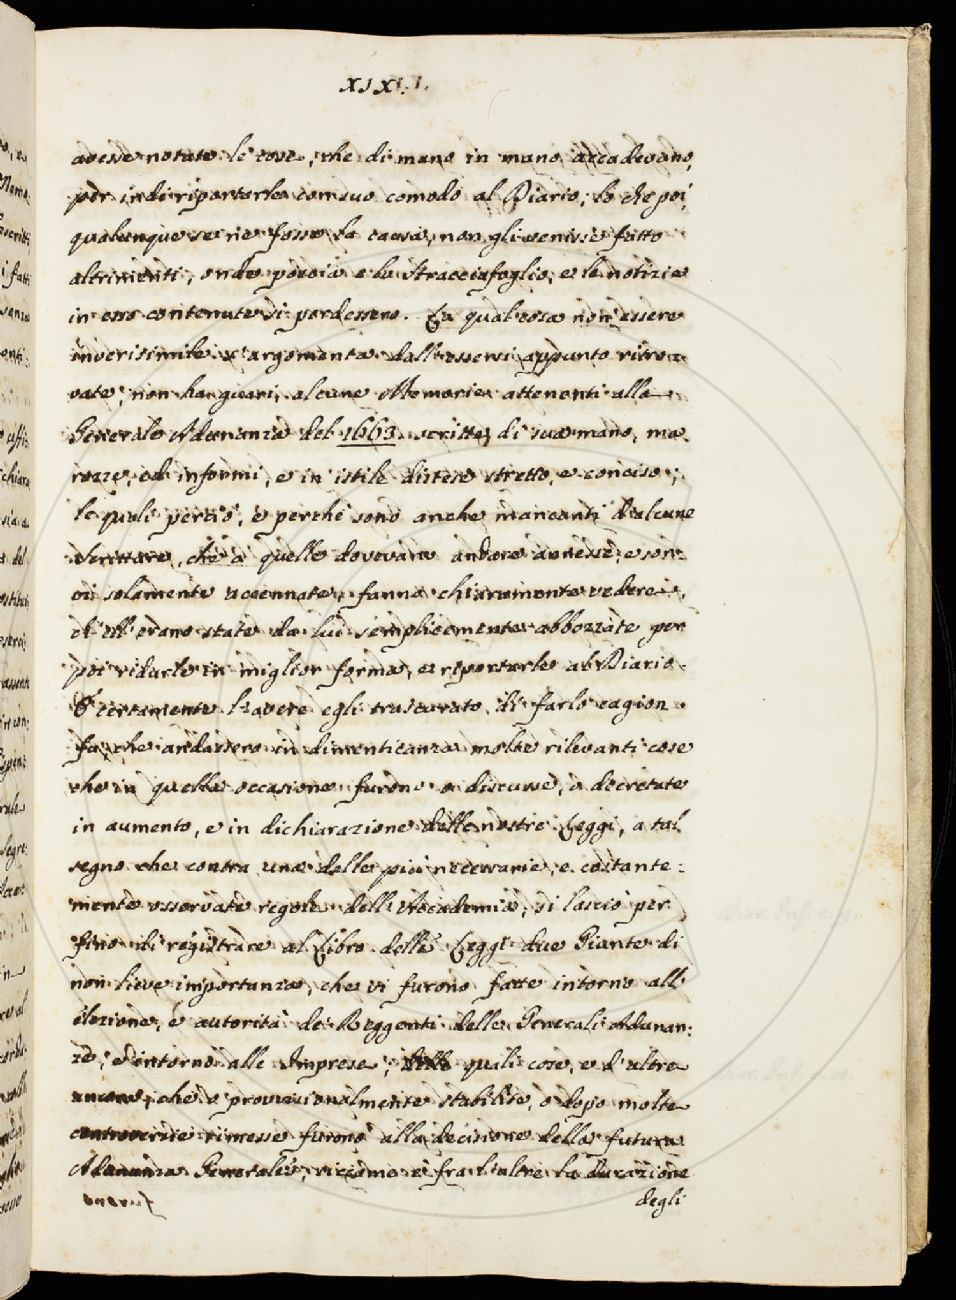 avesse notato le cose, che di mano in mano accadevano,
per indi riportarle con suo comodo al Diario; lo che poi,
qualunque se ne fosse la causa, non gli venisse fatto
altrimenti, onde poscia e lo stracciafoglio, e le notizie
in esso contenute si perdessero. La qual cosa non essere
inverisimile s'argomenta dall'essersi appunto ritro-
vate, non ha guari, alcune Memorie attenenti alla
Generale Adunanza del 1663. scritte di sua mano, ma
rozze, ed informi, e in istile disteso stretto, e conciso;
le quali perciò, e perchè sono anche mancanti d'alcune
scritture, che a quelle dovevano andare annesse, e son
ivi solamente accennate, fanno chiaramente vedere,
ch'ell'erano state da lui semplicemente abbozzate per
poi ridurle in miglior forma, e riportarle al Diario.
E certamente l'avere egli trascurato di farlo cagion
fu, che andassero in dimenticanza molte rilevanti cose
che in quella occasione furono o discusse, o decretate
in aumento, e in dichiarazione delle nostre Leggi, a tal
segno che contra una delle più necessarie, e costante:
mente osservate regole dell'Accademia, si lasciò per
fino di registrare al Libro delle Leggi due Piante di
non lieve importanza, che vi furono fatte intorno all'
elezione, e autorità de' Reggenti delle Generali Adunan:
ze, ed intorno alle Imprese; quali cose, e d'altre
ancora, che o provvisionalmente stabilite, o dopo molte
controversie rimesse furono alla decisione della futura
Adunanza Generale, siccome è fra l'altre la durazione
degli